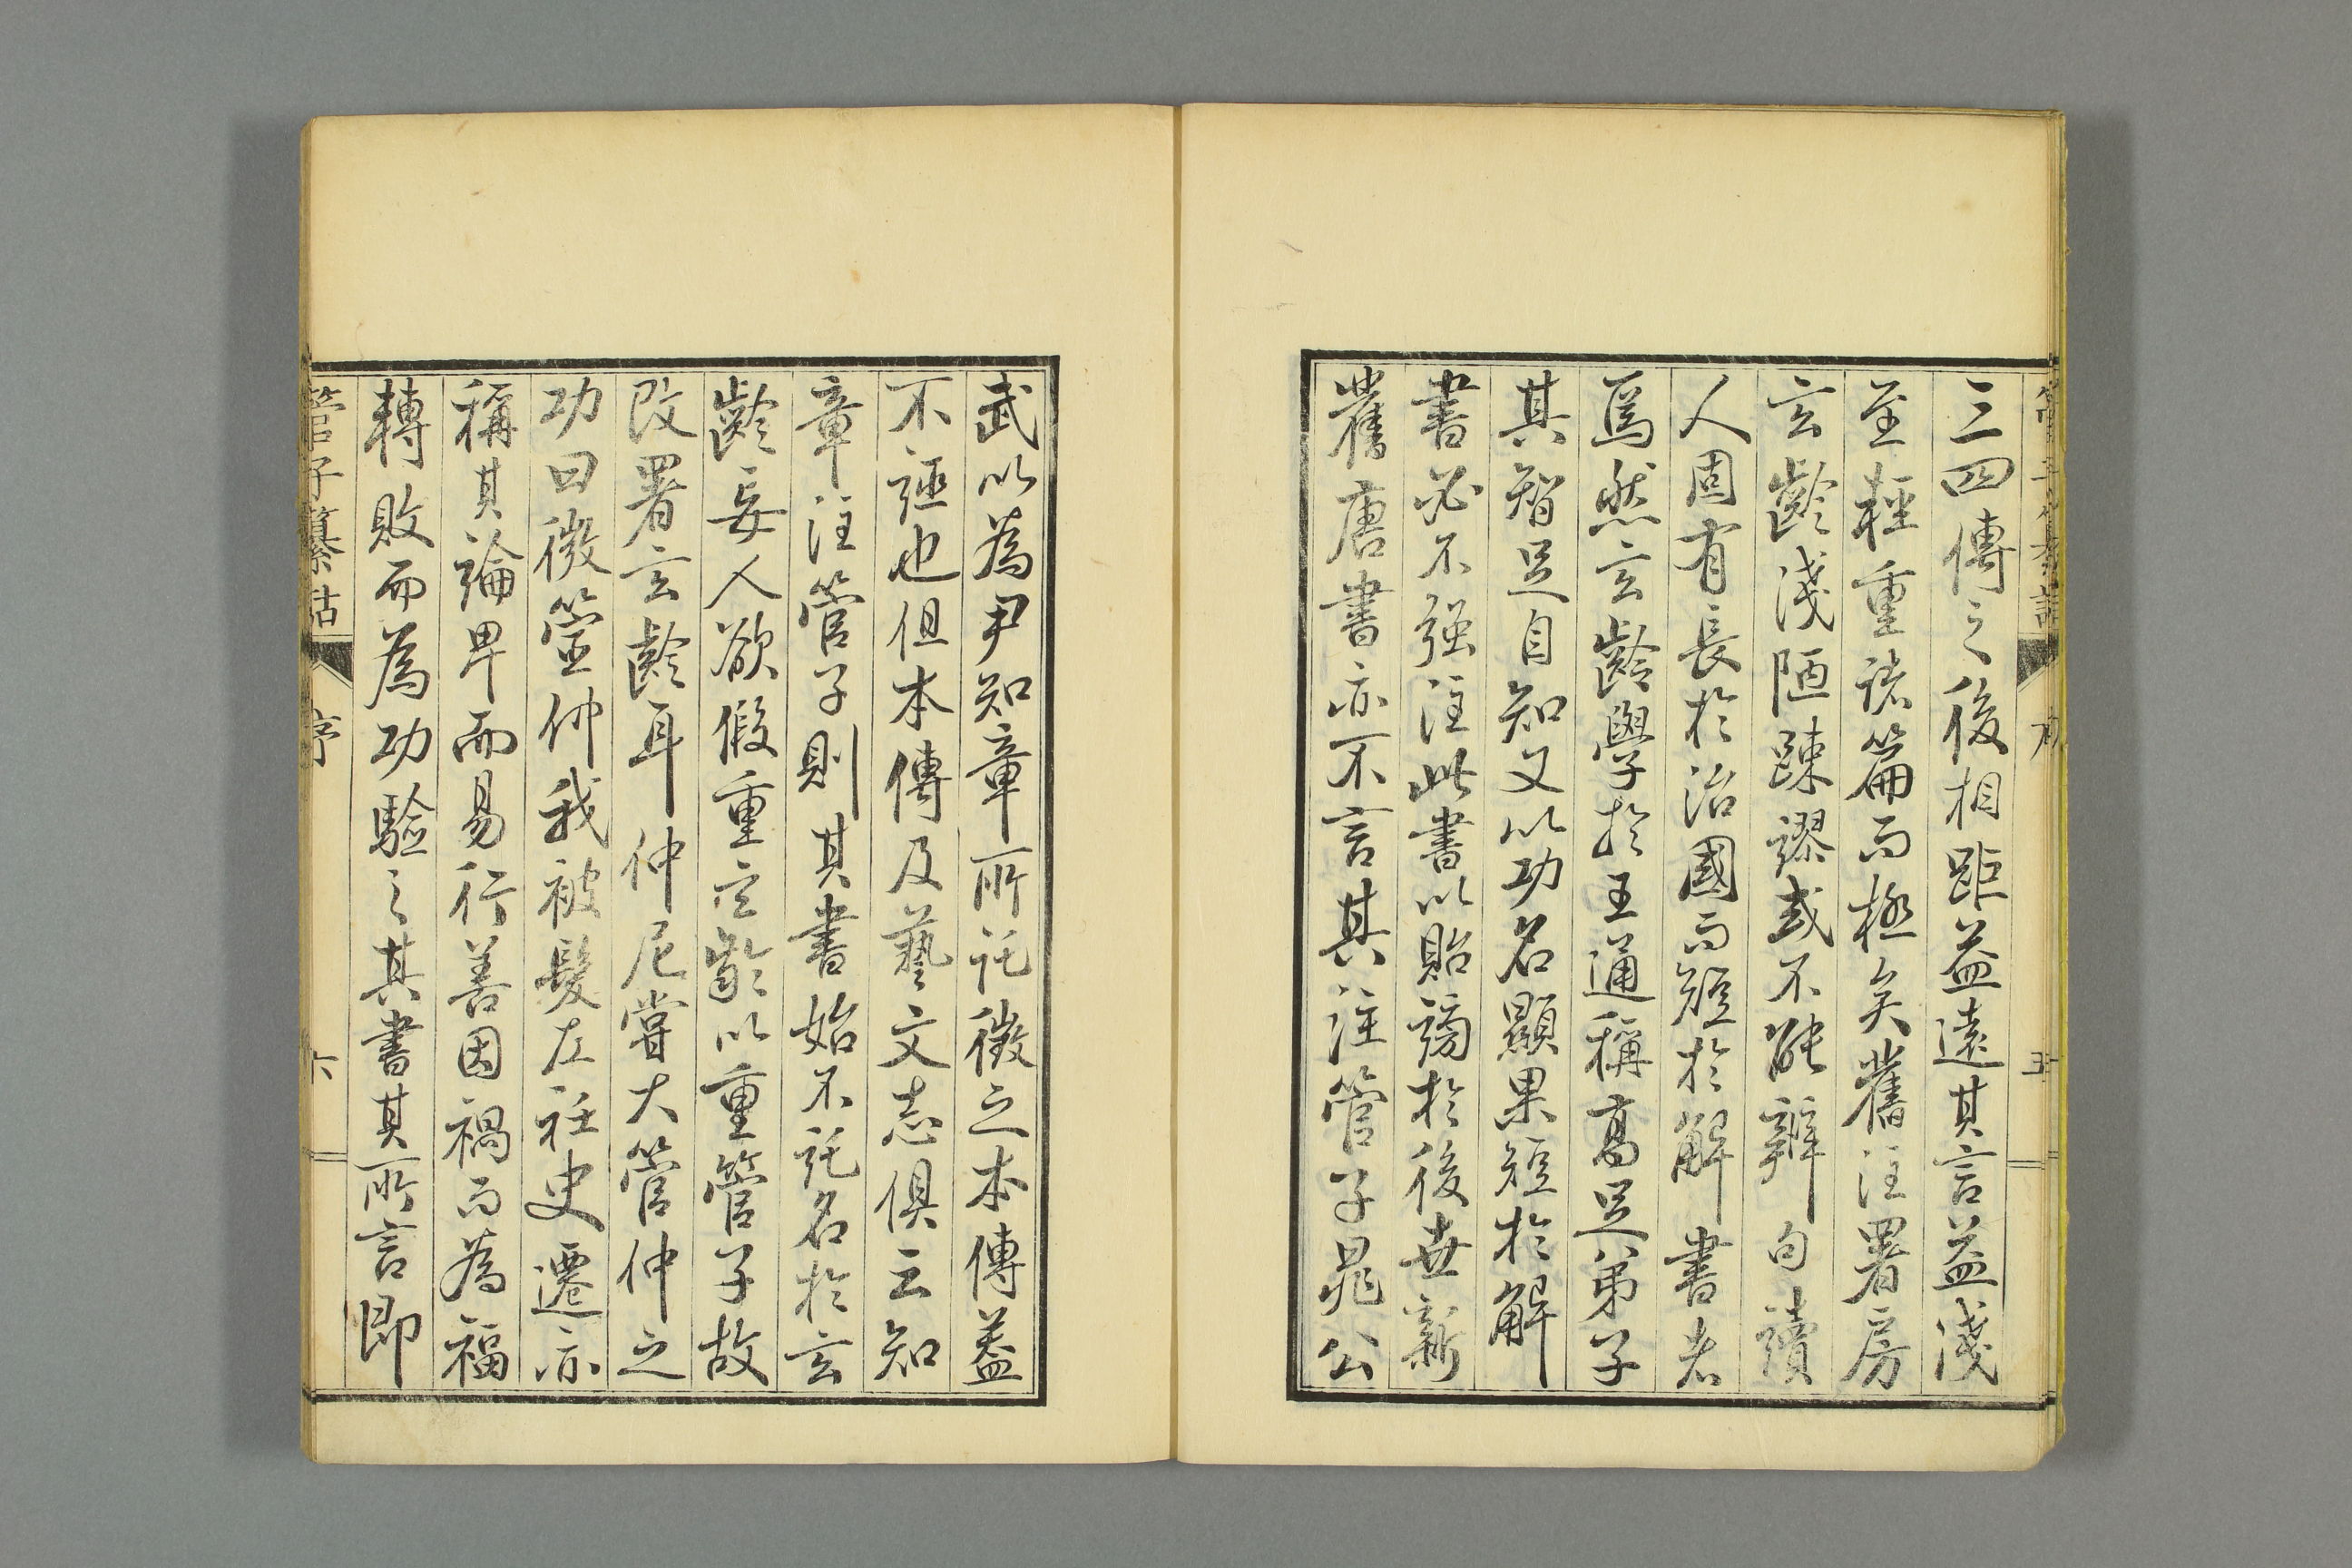 三四傳之後相距益遠其言益淺
至輕重諸篇而極矣舊注署房
玄齡淺陋踈謬或不能辨句讀
人固有長於治國而短於解書者
焉然玄齡學於王通稱高足弟子
其智足自知又以功名顯果短於解
書必不强注此書以貽謗於後世新
舊唐書亦不言其注管子晁公
武以為尹知章所託徵之本傳益
不誣也但本傳及藝文志俱云知
章注管子則其書始不託名於玄
齡妄人欲假重玄齡以重管子故
改署玄齡耳仲尼嘗大管仲之
功曰微管仲我被髮左衽史遷亦
稱其論卑而易行善因禍而為福
轉敗而為功驗之其書其所言即
管子纂詁 序 六